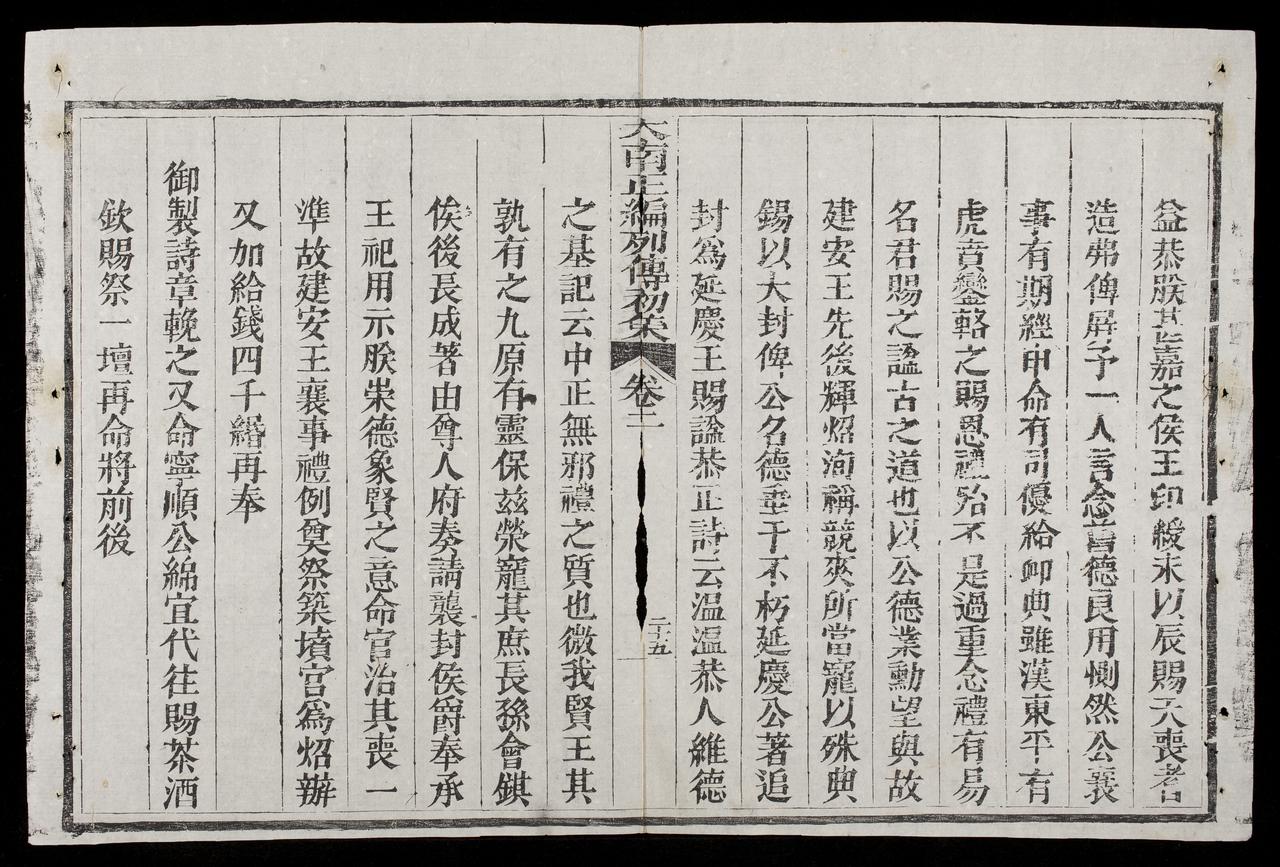 益恭朕其嘉之侯王印綬未以辰賜天喪耆
造弗俾屏予一人言念舊德良用惻然公襄
事有期經申命有司優給卹典雖漢東平有
虎賁鑾輅之賜恩禮殆不是過重念禮有易
名君賜之謚古之道也以公德業勳望與故
建安王先後輝炤洵稱競爽所當寵以殊典
錫以大封俾公名德垂于不朽延慶公著追
封爲延慶王賜謚恭正詩云温温恭人維德
大南正編列傳初集 卷二 二十五
之基記云中正無邪禮之質也微我賢王其
孰有之九原有靈保兹榮寵其庶長孫會錤
俟後長成著由尊人府奏請襲封侯爵奉承
王祀用示朕崇德象賢之意命官治其喪一
準故建安王襄事禮例奠祭築墳宮爲炤辦
又加給錢四千緡再奉
御製詩章輓之又命寧順公綿宜代往賜茶酒
欽賜祭一壇再命將前後